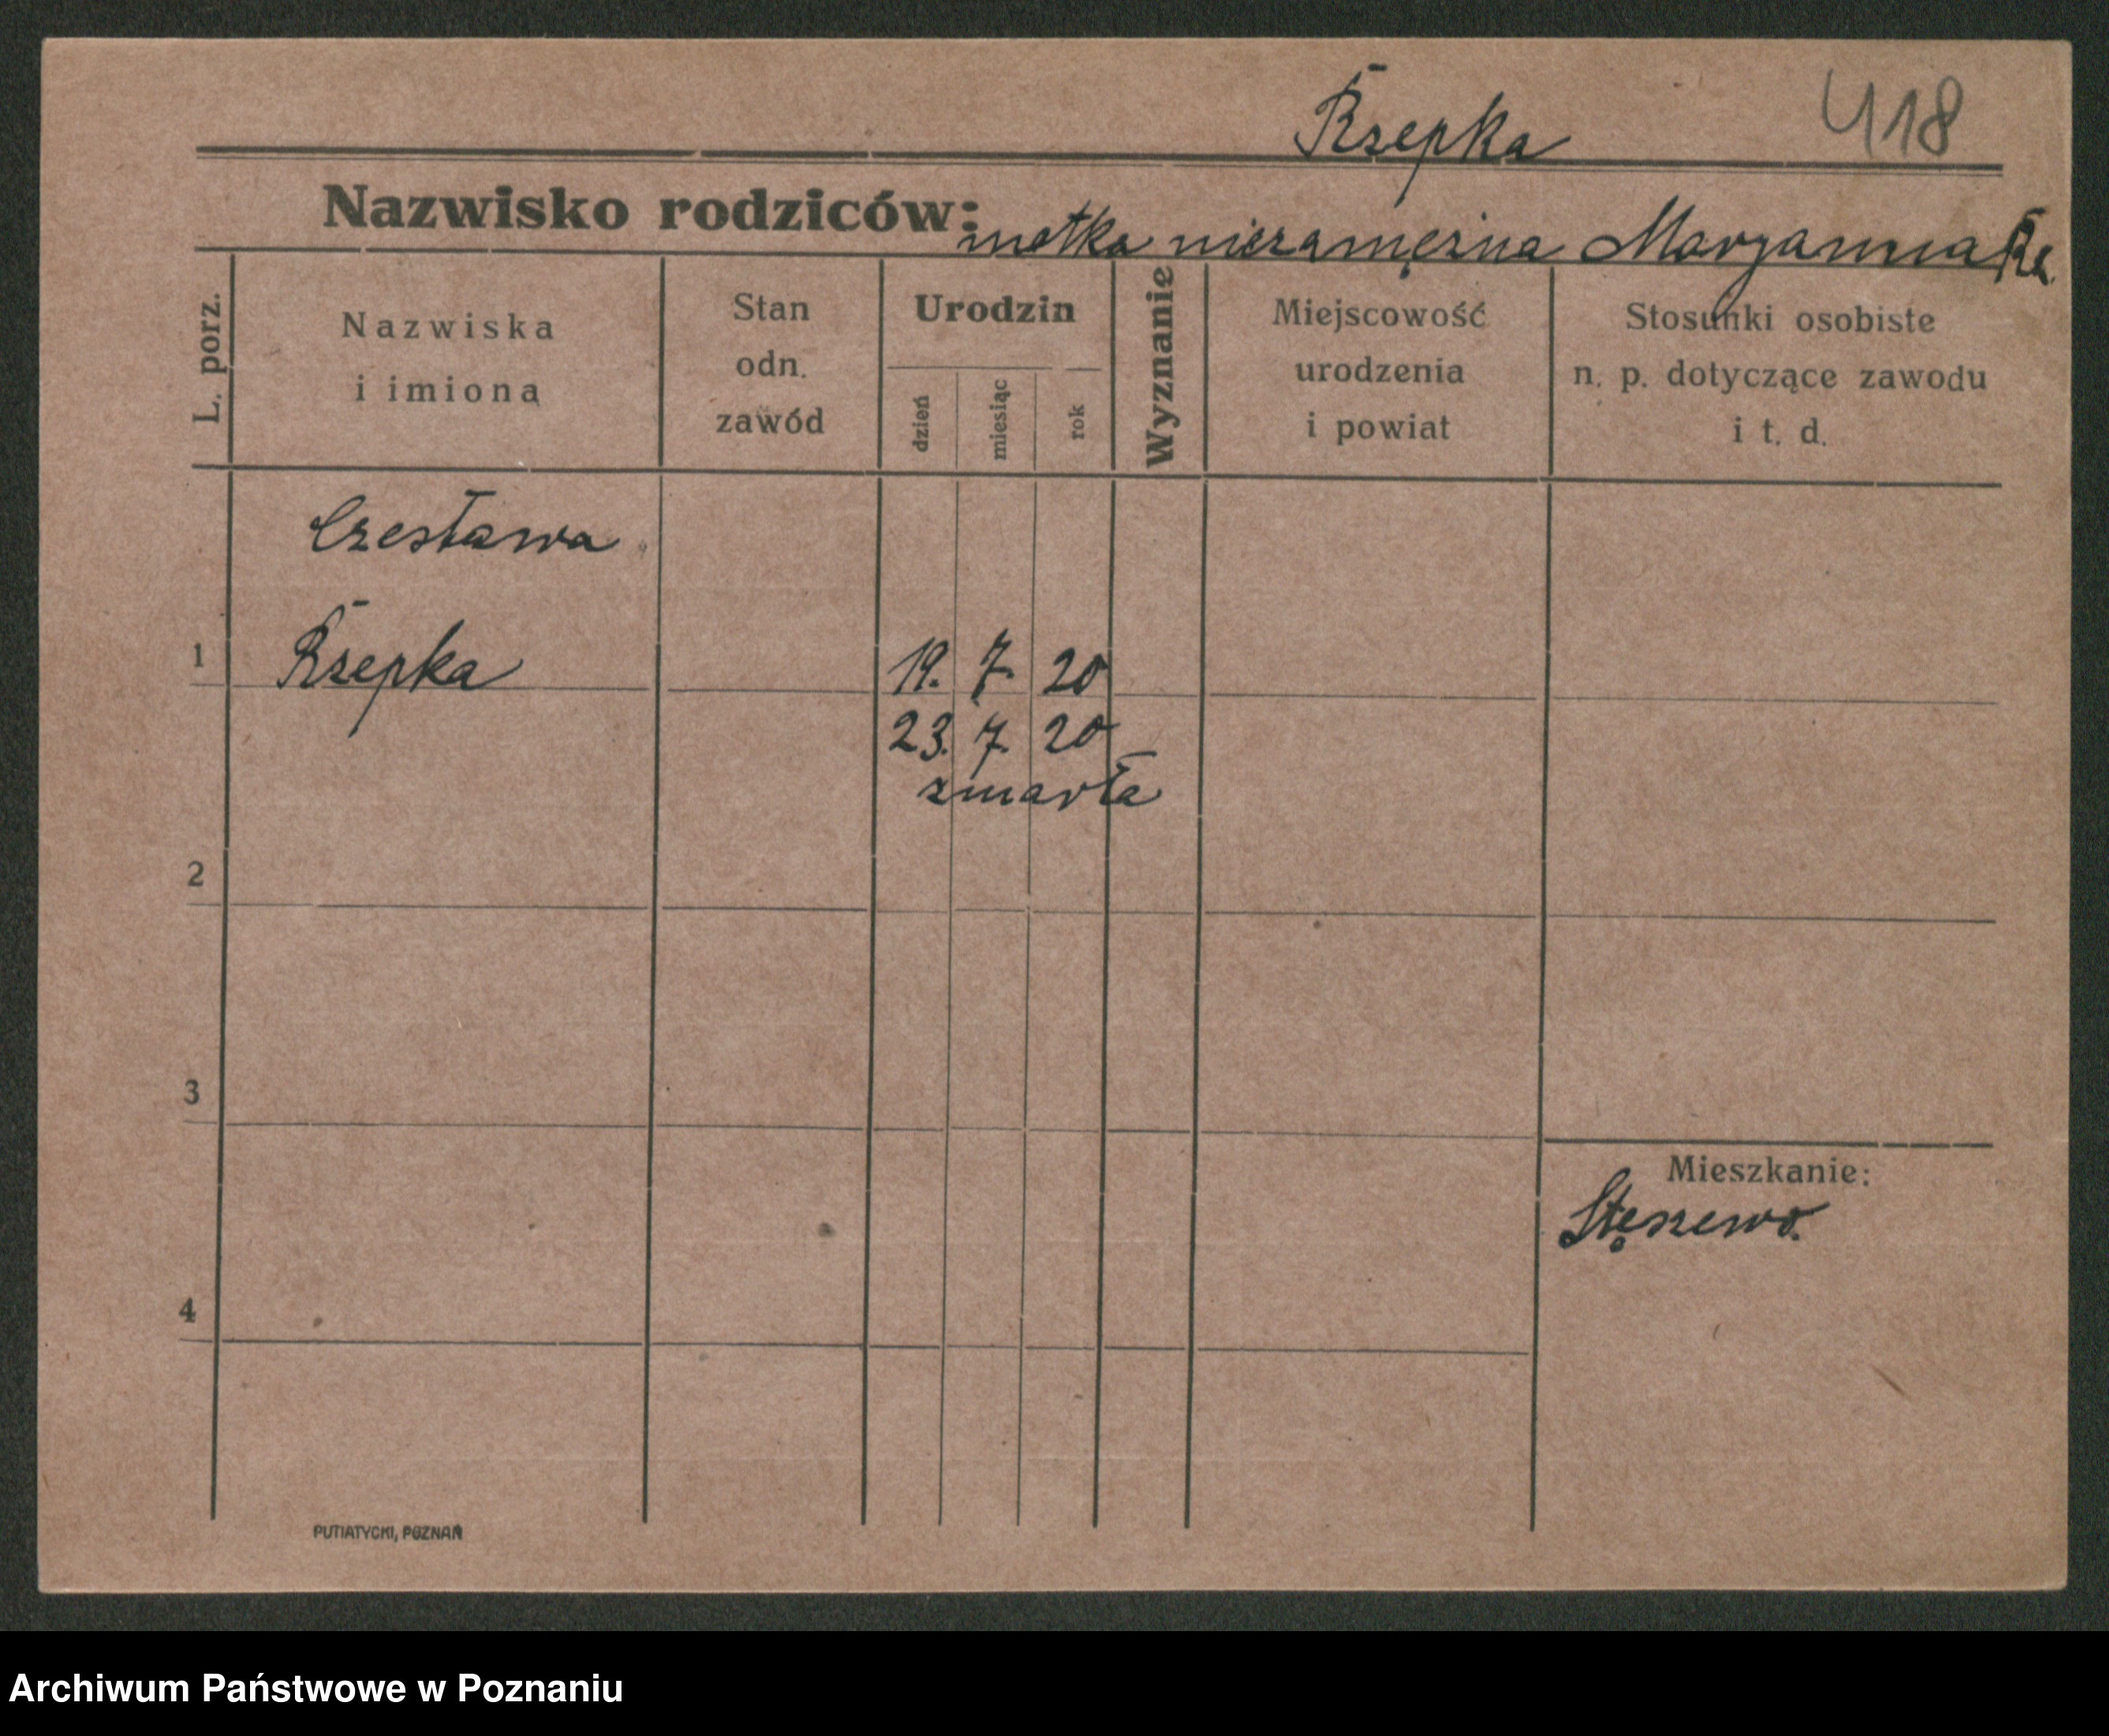 Rzepka 418
Nazwisko rodziców: matka niezamężna Maryanna Rz.
L. porz.
Nazwiska
i imiona
Stan
odn.
zawód
Urodzin
dzień
miesiąc
rok
Wyznanie
Miejscowość
urodzenia
i powiat
Stosunki osobiste
n. p. dotyczące zawodu
i t. d.
Czesława
1 Rzepka 19. 7. 20
23. 7. 20
zmarła
2
3
Mieszkanie:
Stęszewo.
4
PUTIATYCKI, POZNAŃ
Archiwum Państwowe w Poznaniu